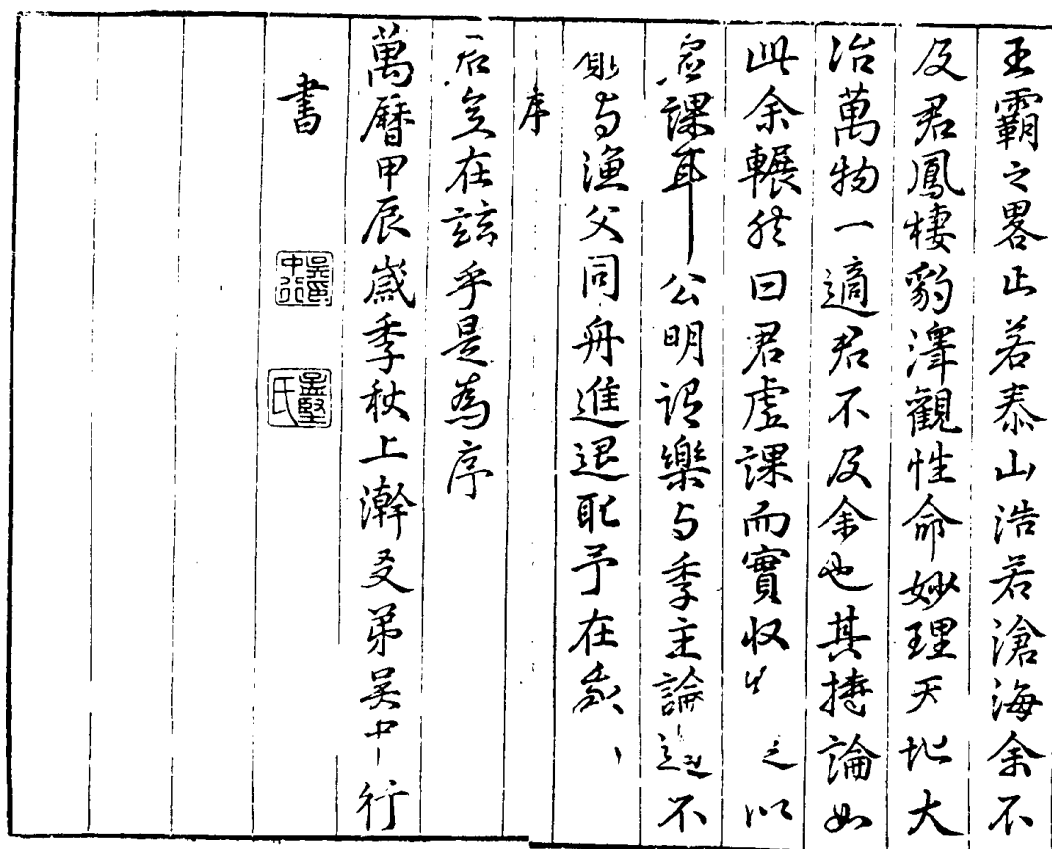 王霸之畧止若泰山浩若滄海余不
及君鳳棲豹澤觀性命妙理天地大
冶萬物一適君不及余也其持論如
此余輾然曰君虛課而實收 之以
虛課耳 公明語樂与季主論 不
与漁父同舟進退耻予在
序
在茲乎是為序
萬曆甲辰歲季秋上澣友弟吳中行
書
吳中行印
吳堅氏